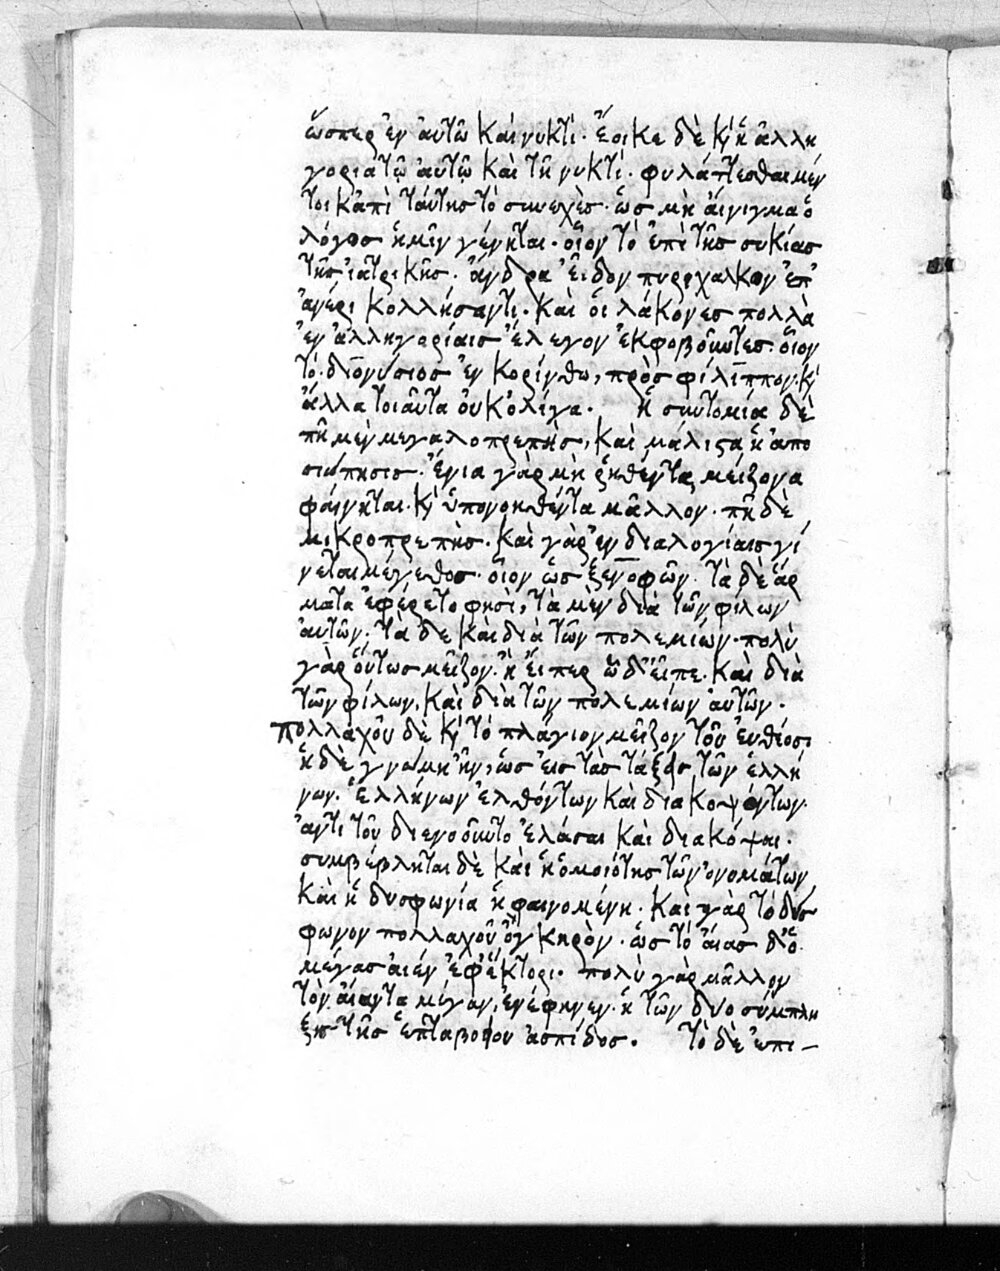 ὥσπερ ἐν αὐτῶ καὶ νυκτί. ἔοικε δὲ κ̀ ἡ ἀλλη
γορία τῷ αὐτῷ καὶ τῆ νυκτὶ. φυλάττεσθαι μέν
τοι κἀπὶ ταύτης τὸ συνεχὲς. ὡς μὴ αἴνιγμα ὁ
λόγος ἡμῖν γένηται. οἷον τὸ ἐπὶ τῆς συκίας
τῆς ἰατρικῆς. ἄνδρα εἶδον πυρὶ χαλκὸν ἐπ'
ἀνέρι κολλήσαντι. καὶ οἱ λάκονες πολλὰ
ἐν ἀλληγορίαις ἔλεγον ἐκφοβοῦντες. οἷον
τὸ διονύσιος ἐν κορίνθω, πρὸς φίλιππον. κ̀
ἄλλα τοιαῦτα οὐκ ὀλίγα. ἡ συντομία δὲ
πῆ μὲν μεγαλοπρεπὴς, καὶ μάλιστα ἡ ἀπο
σιώπησις. ἔνια γὰρ μὴ ῥηθέντα μείζονα
φαίνηται. κ̀ ὑπονοηθέντα μᾶλλον. πῆ δὲ
μικροπρεπὴς. καὶ γὰρ ἐν διαλογίαις γί
νεται μέγεθος. οἷον ὡς ξενοφῶν. τὰ δὲ ἅρ
ματα ἐφέρετο φησὶ, τὰ μὲν διὰ τῶν φίλων
αὐτῶν, τὰ δὲ καὶ διὰ τῶν πολεμίων. πολὺ
γὰρ οὕτως μεῖζον. ἢ εἴπερ ὧδ' εἶπε. καὶ διὰ
τῶν φίλων, καὶ διὰ τῶν πολεμίων αὐτῶν.
πολλαχοῦ δὲ κ̀ τὸ πλάγιον μεῖζον τοῦ εὐθέος.
ἡ δὲ γνώμη ἦν, ὡς εἰς τὰς τάξεις τῶν ἑλλή
νων. ἑλλήνων ἐλθόντων καὶ διακοψόντων.
ἀντὶ τοῦ διενοοῦντο ἐλάσαι καὶ διακόψαι.
συμβέβληται δὲ καὶ ἡ ὁμοιότης τῶν ὀνομάτων
καὶ ἡ δυσφωνία ἡ φαινομένη. καὶ γὰρ τὸ δύσ
φωνον πολλαχοῦ ὀγκηρὸν. ὡς τὸ αἴας δ' ὁ
μέγας αἰὲν ἐφ' ἕκτορι. πολὺ γὰρ μᾶλλον
τὸν αἴαντα μέγαν, ἐνέφηνεν. ἡ τῶν δύο σύμπλη
ξις τῆς ἑπταβοείου ἀσπίδος. τὸ δὲ ἐπι-